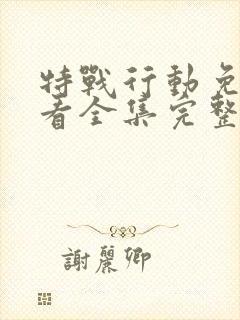 特戰行動免
看全集完整
謝麗卿